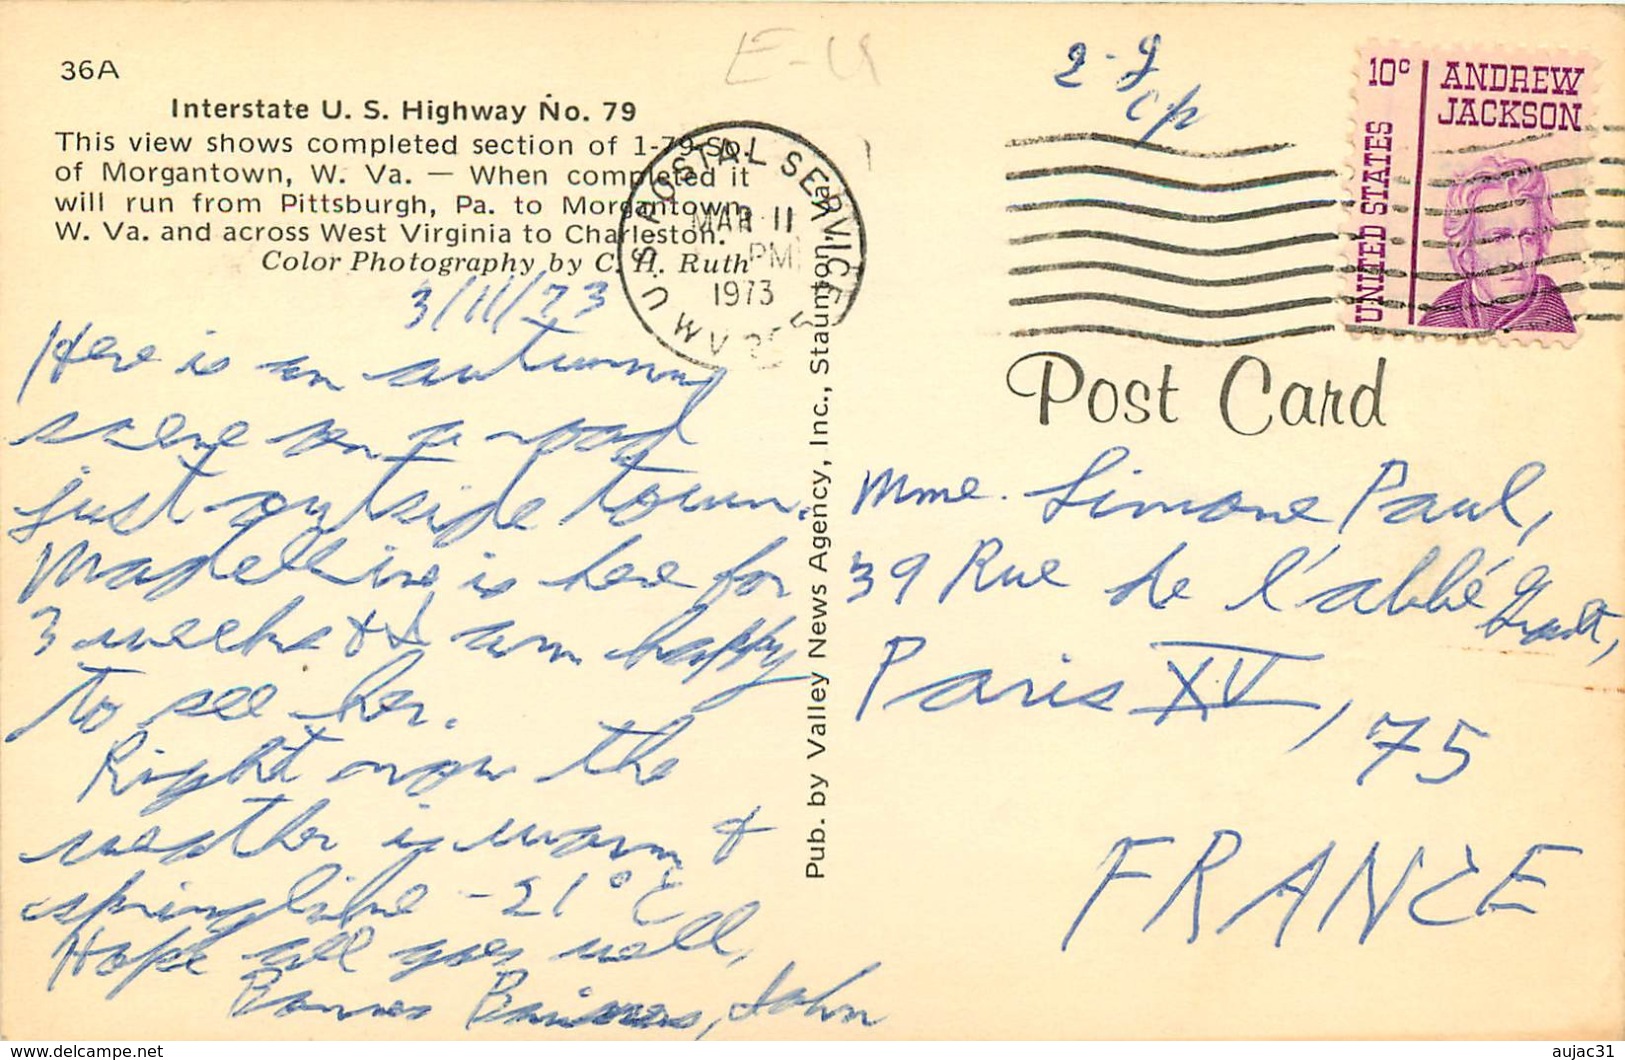 36A
Interstate U. S. Highway No. 79
This view shows completed section of 1-79 So.
of Morgantown, W. Va. — When completed it
will run from Pittsburgh, Pa. to Morgantown,
W. Va. and across West Virginia to Charleston.
Color Photography by C. H. Ruth
3/11/73
Here is an autumn
scene on a road
just outside town.
Madelline is here for
3 weeks & I am happy
to see her.
Right now the
weather is warm &
springlike - 21°C
Hope all goes well,
Bonnes Baisers, John
Pub. by Valley News Agency, Inc., Staunton, Va.
E-U
2-
cp
U.S. POSTAL SERVICE
MAR 11
PM
1973
10c ANDREW
JACKSON
UNITED STATES
Post Card
Mme. Simone Paul,
39 Rue de l'abbé Groult,
Paris XV, 75
FRANCE
aujac31